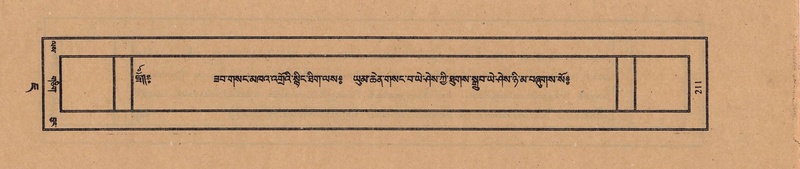 ༄༅།།༔ ཟབ་གསང་མཁའ་འགྲོའི་སྙིང་ཐིག་ལས༔ ཡུམ་ཆེན་གསང་བ་ཡེ་ཤེས་ཀྱི་ཐུགས་སྒྲུབ་ཡེ་ཤེས་ཉི་མ་བཞུགས་སོ༔
211